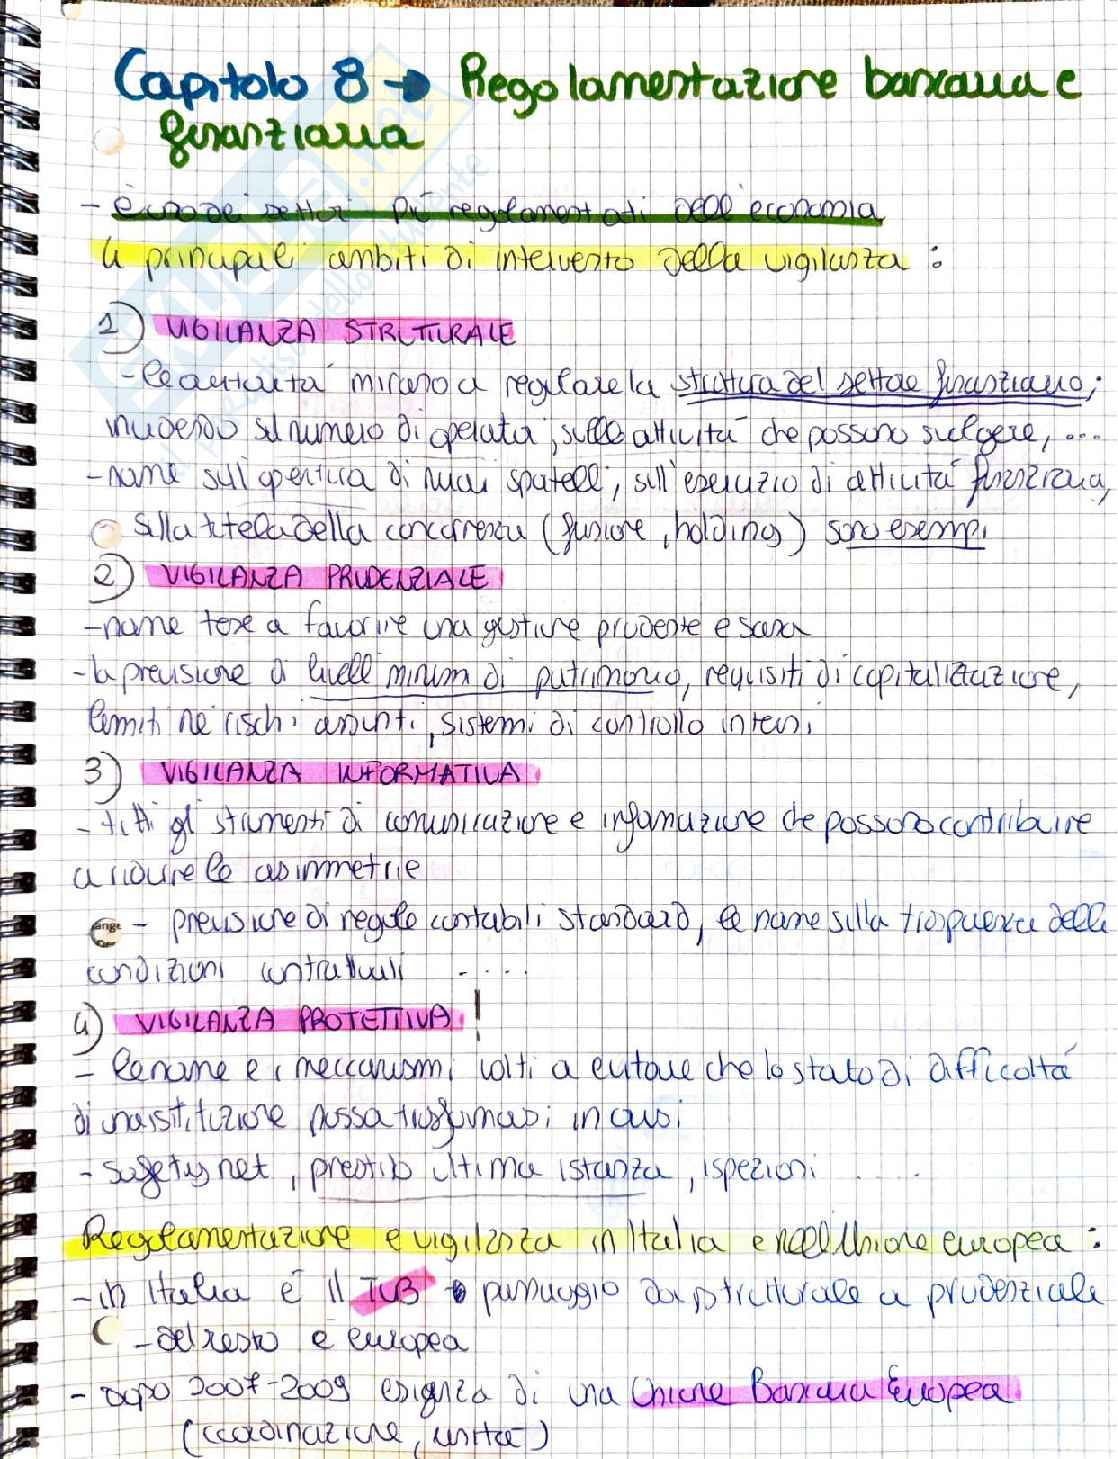 Capitolo 8 → Regolamentazione bancaria e
finanziaria
- è uno dei settori più regolamentati dell'economia
4 principali ambiti di intervento della vigilanza :
1) VIGILANZA STRUTTURALE
- le autorità mirano a regolare la struttura del settore finanziario;
incidendo sul numero di operatori, sulle attività che possono svolgere, ....
- norme sull'apertura di nuovi sportelli, sull'esercizio di attività finanziaria,
sulla tutela della concorrenza (fusione, holding) sono esempi
2) VIGILANZA PRUDENZIALE
- norme tese a favorire una gestione prudente e sana
- la previsione di livelli minimi di patrimonio, requisiti di capitalizzazione,
limiti nei rischi assunti, sistemi di controllo interni
3) VIGILANZA INFORMATIVA
- tutti gli strumenti di comunicazione e informazione che possono contribuire
a ridurre le asimmetrie
- previsione di regole contabili standard, le norme sulla trasparenza delle
condizioni contrattuali ....
4) VIGILANZA PROTETTIVA !
- le norme e i meccanismi volti a evitare che lo stato di difficoltà
di un'istituzione possa trasformarsi in crisi
- safety net, prestito ultima istanza, ispezioni ....
Regolamentazione e vigilanza in Italia e nell'Unione europea :
- in Italia è il TUB → passaggio da strutturale a prudenziale
- del resto è europea
- dopo 2007-2009 esigenza di una Unione Bancaria Europea
(coordinazione, unità)